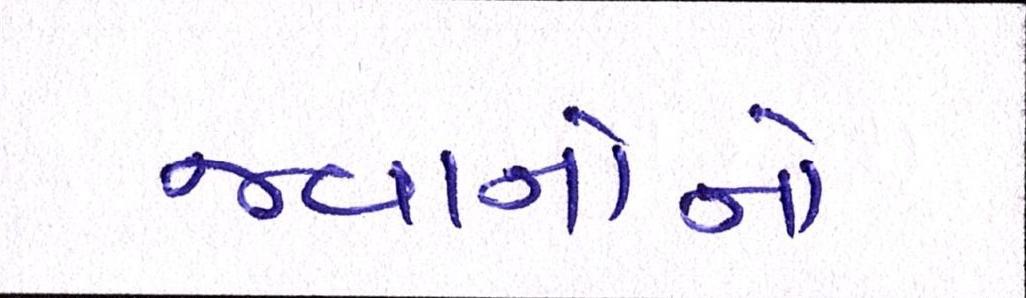 જવાનોનો